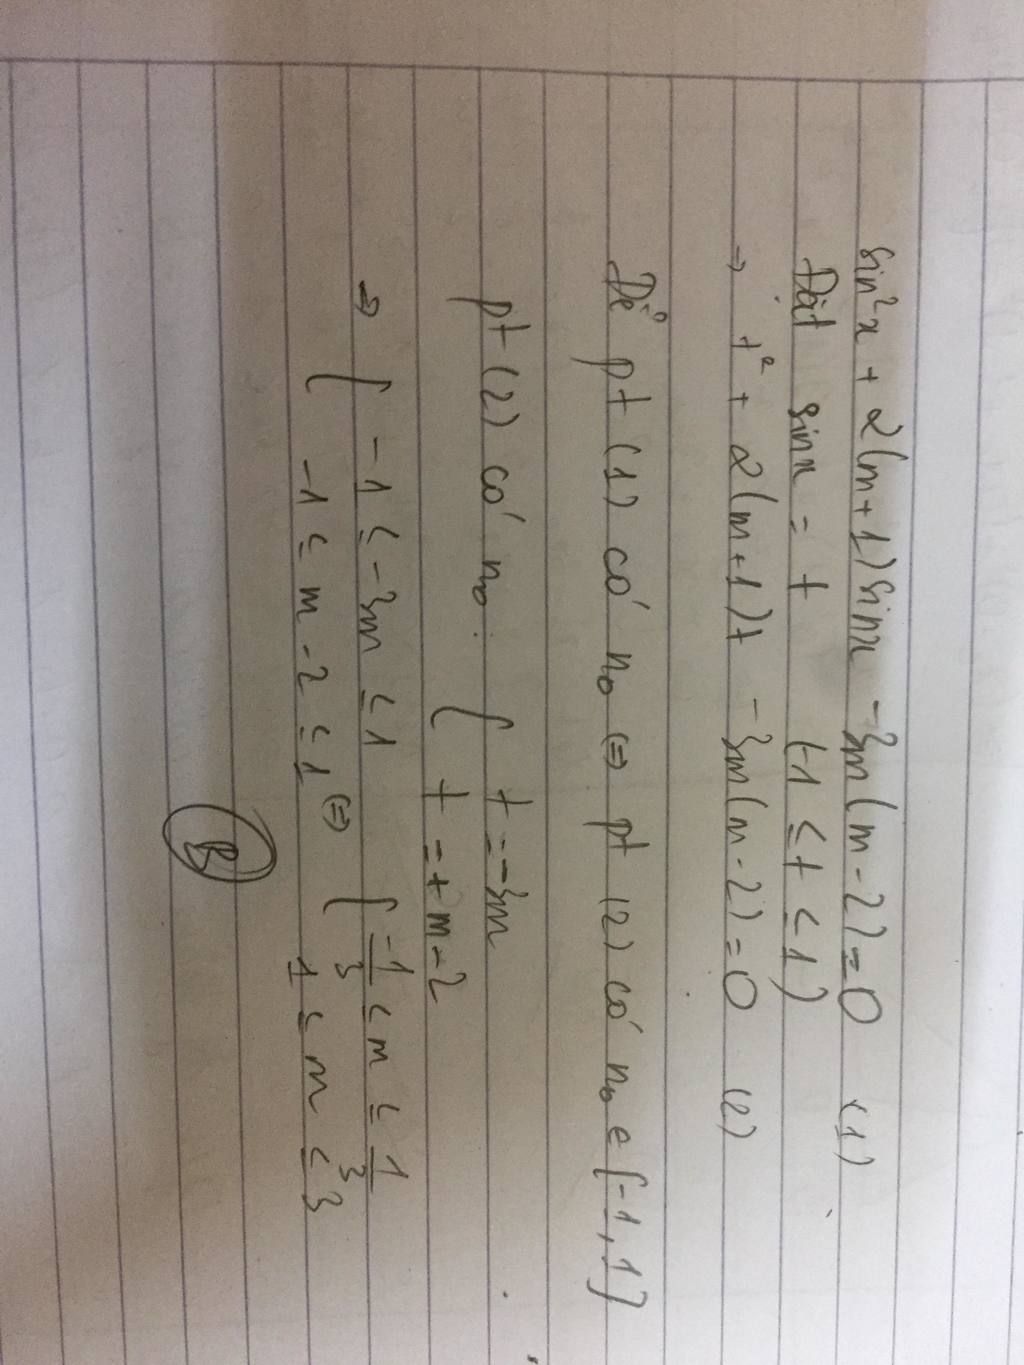 sin²x + 2(m+1)sinx - 3m(m-2)=0 (1)
Đặt sinx = t (-1 ≤ t ≤ 1)
⇒ t² + 2(m+1)t - 3m(m-2)=0 (2)
Để pt (1) có no ⇔ pt (2) có no e [-1,1]
pt (2) có no: { t = -3m
t = + m-2
⇒ { -1 ≤ -3m ≤ 1
-1 ≤ m-2 ≤ 1 ⇔ { -1/3 ≤ m ≤ 1/3
1 ≤ m ≤ 3
B